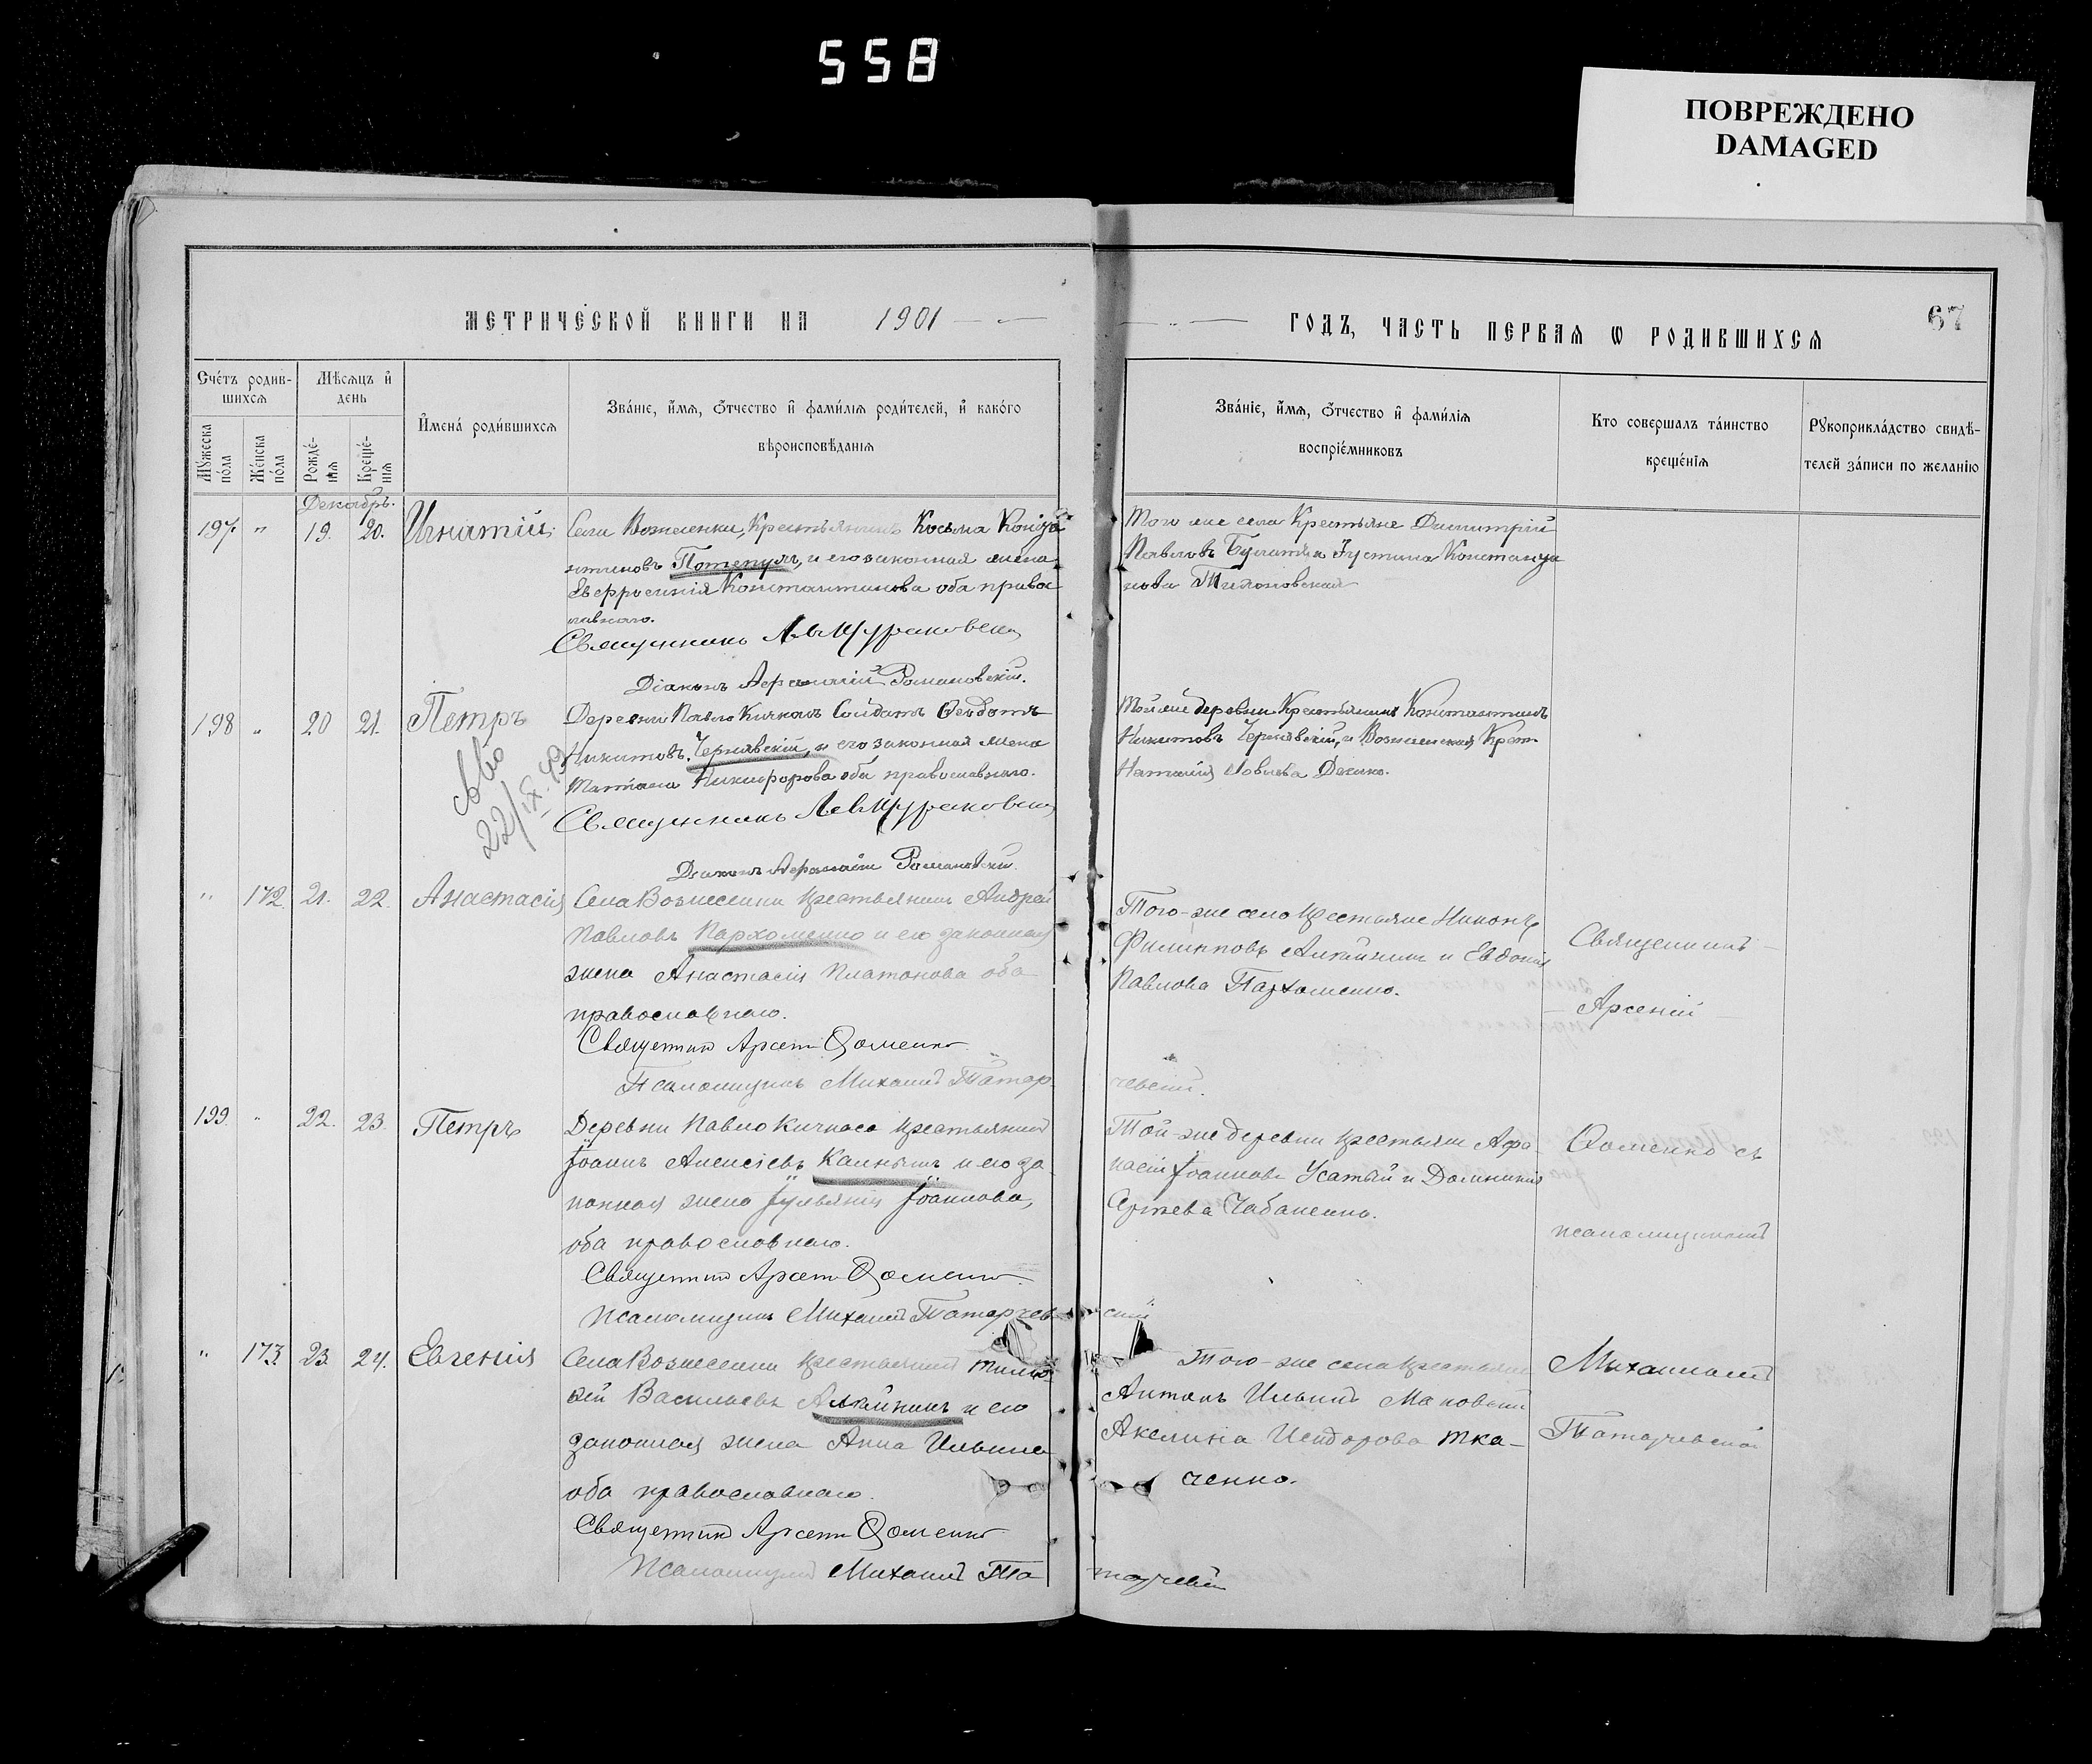 558
ПОВРЕЖДЕНО
DAMAGED
МЕТРИЧЕСКОЙ КНИГИ НА 1901
ГОДЪ, ЧАСТЬ ПЕРВАЯ Ѡ РОДИВШИХСЯ
67
Счетъ родив-
шихся
Мѣсяцъ и
день
Имена родившихся
Званіе, имя, отчество и фамилія родителей, и какого
вѣроисповѣданія
Мужеска
пола
Женска
пола
Рожде-
нія
Креще-
нія
Званіе, имя, отчество и фамилія
воспріемниковъ
Кто совершалъ таинство
крещенія
Рукоприкладство свидѣ-
телей записи по желанію
Декабрь.
197 " 19. 20. Игнатій
Села Вознесенки, Крестьянинъ Косьма Конста
нтиновъ Потепунъ, и его законная жена
Евфросинія Константинова оба правос
лавнаго.
Священникъ
Діаконъ Афанасій Романовскій.
Того же села Крестьяне Димитрій
Павловъ и Іустина Константи
нова
198 " 20 21. Петръ
22/IX 49
Деревни Павло Кичкаса Солдатъ Ѳеодотъ
Никитовъ Чернявскій, и его законная жена
Татіана Никифорова оба православнаго.
Священникъ
Діаконъ Афанасій Романовскій.
Той же деревни Крестьянинъ Константинъ
Никитовъ Чернявскій, и Вознесенская Крест.
Наталія
" 172. 21. 22. Анастасія
Села Вознесенки крестьянинъ Андрей
Павловъ Пархоменко и его законная
жена Анастасія Платонова оба
православнаго.
Священникъ Арсеній Ѳоменко
Псаломщикъ Михаилъ Татар-
чевскій.
Того-же села крестьяне Никонъ
Филипповъ Алейникъ и Евдокія
Павлова Пархоменко.
Священникъ
Арсеній
199. " 22. 23. Петръ
Деревни Павло Кичкаса крестьянинъ
Іоаннъ Алексіевъ Калнышъ и его за-
конная жена Іуліанія Іоаннова,
оба православнаго.
Священникъ Арсеній Ѳоменко
Псаломщикъ Михаилъ Татарчев-
скій
Той-же деревни крестьяне Афа-
насій Іоанновъ Усатый и Домникія
Сергіева Чабаненко.
Ѳоменко съ
псаломщикомъ
" 173. 23. 24. Евгенія
Села Вознесенки крестьянинъ Тимо-
ѳей Васильевъ Алейникъ и его
законная жена Анна Ильина
оба православнаго.
Священникъ Арсеній Ѳоменко
Псаломщикъ Михаилъ Та
тарчевскій
Того-же села крестьяне
Антонъ Ильинъ Маковскій
Акелина Исидорова Тка-
ченко.
Михаиломъ
Татарчевскимъ